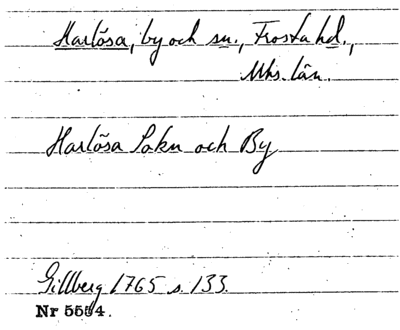 Harlösa, by och sn., Frosta hd.,
Mhs. län.
Harlösa Sokn och By
Gillberg 1765 s. 133.
Nr 5554.